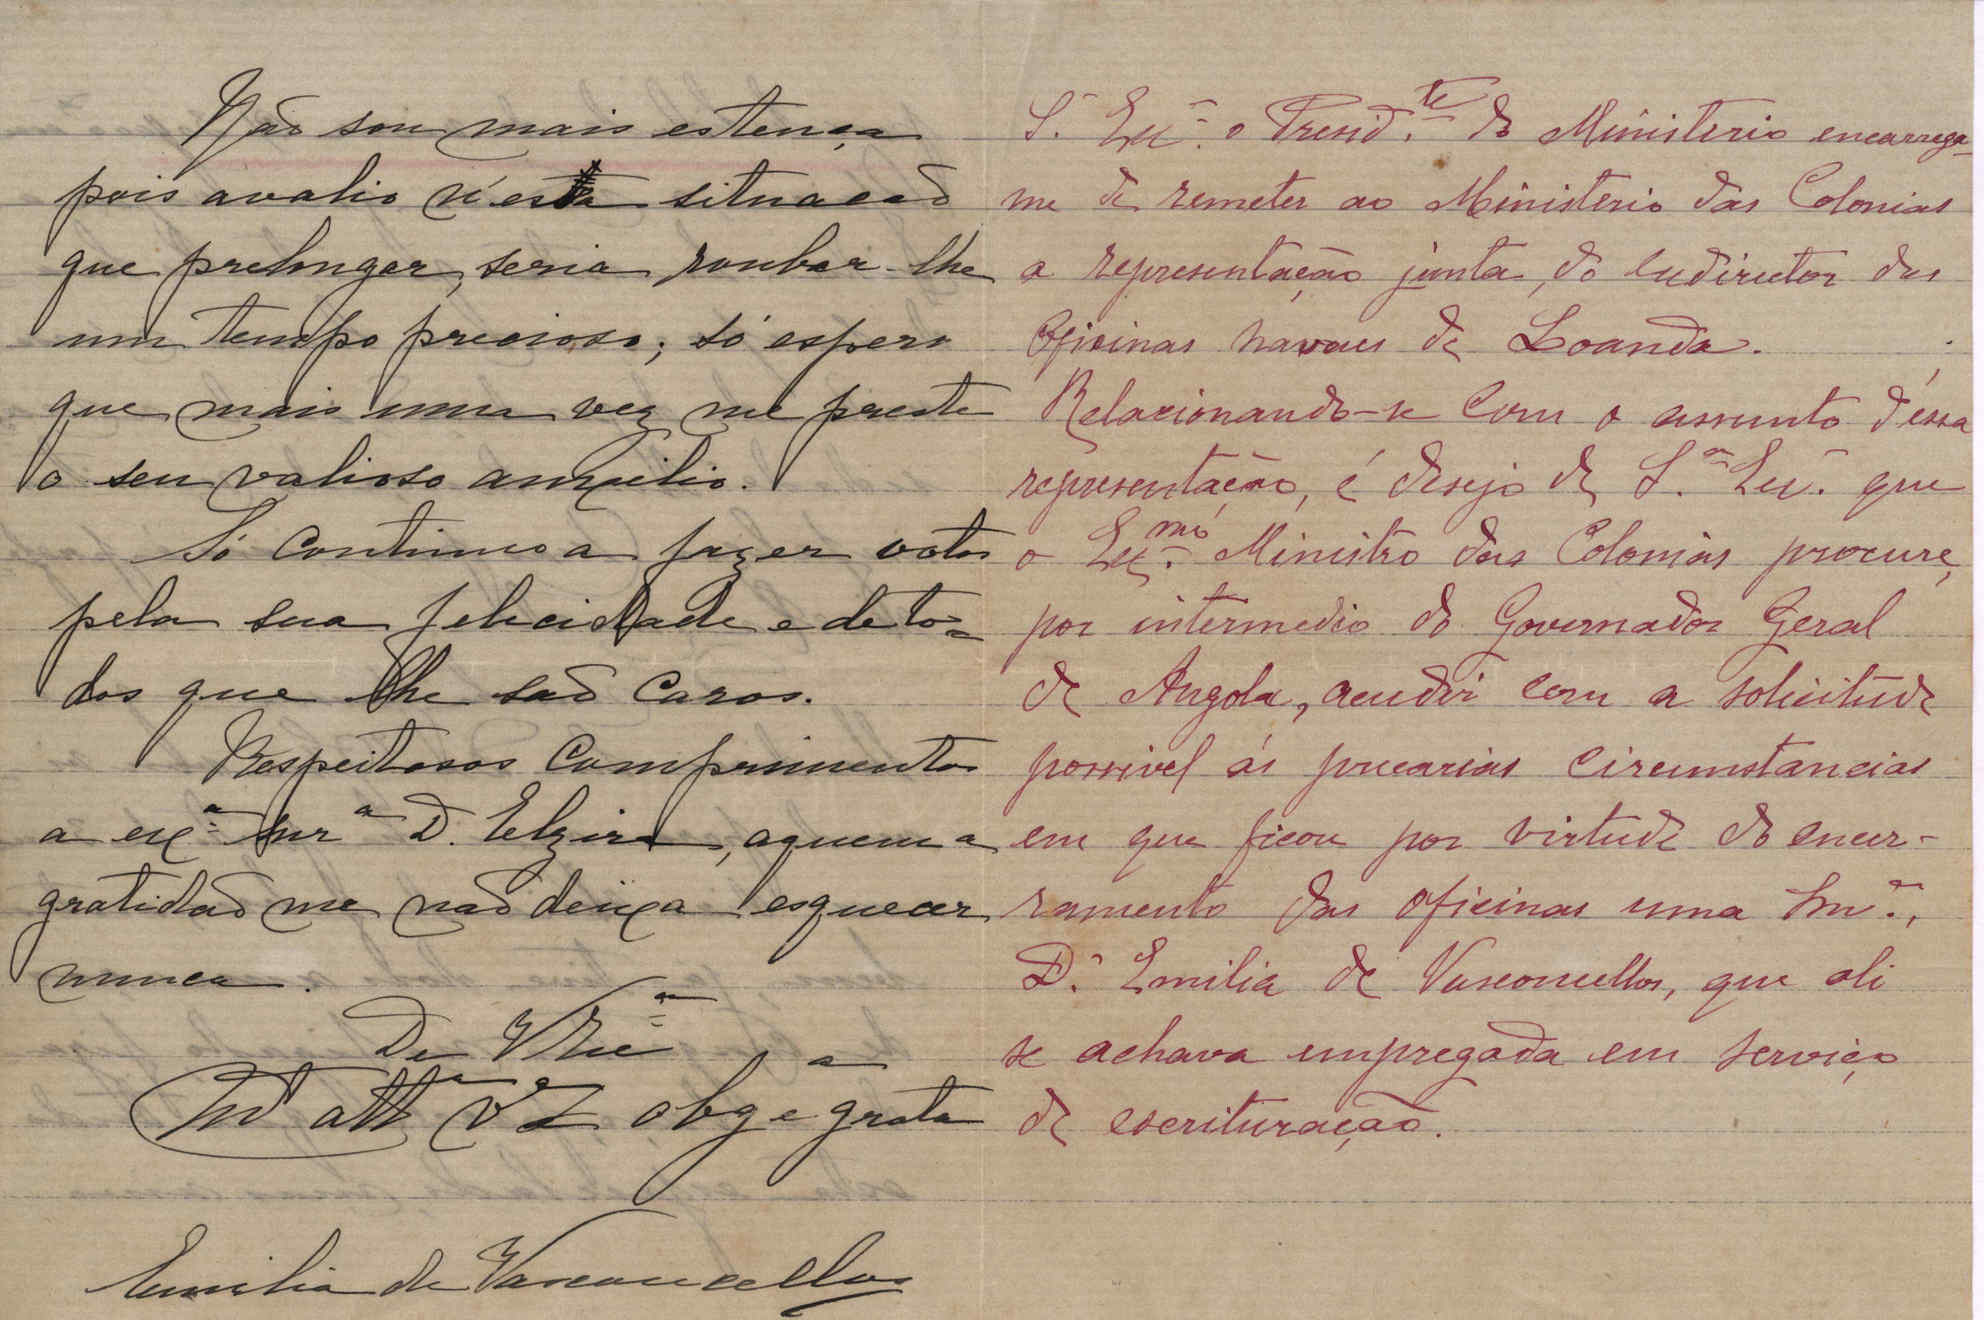 Não sou mais estença
pois avalio n'esta situacaõ
que prelongar, seria roubar-lhe
um tempo precioso; só espero
que mais uma vez me preste
o seu valioso auxilio.
Só continuo a fazer votos
pela sua felicidade e de to=
dos que lhe saõ caros.
Respeitosos Comprimentos
a exª snrª D. Elzira, aquem a
gratidaõ me naõ deixa esquecer
nunca.
De V Exª
attª vª obgª e grata
Emilia de Vasconcellos
S. Exª. o Presid.te do Ministerio encarrega-
me de remeter ao Ministerio das Colonias
a representação junta, do exdirector das
Oficinas navaes de Loanda.
Relacionando-se com o assunto d'essa
representação, é desejo de S.ª Exª. que
o Ex.mo Ministro das Colonias procure,
por intermedio do Governador Geral
de Angola, acudir com a solicitude
possivel ás precarias circumstancias
em que ficou por virtude do encer-
ramento das oficinas uma Snrª.,
D. Emilia de Vasconcellos, que ali
se achava empregada em serviço
de escrituração.